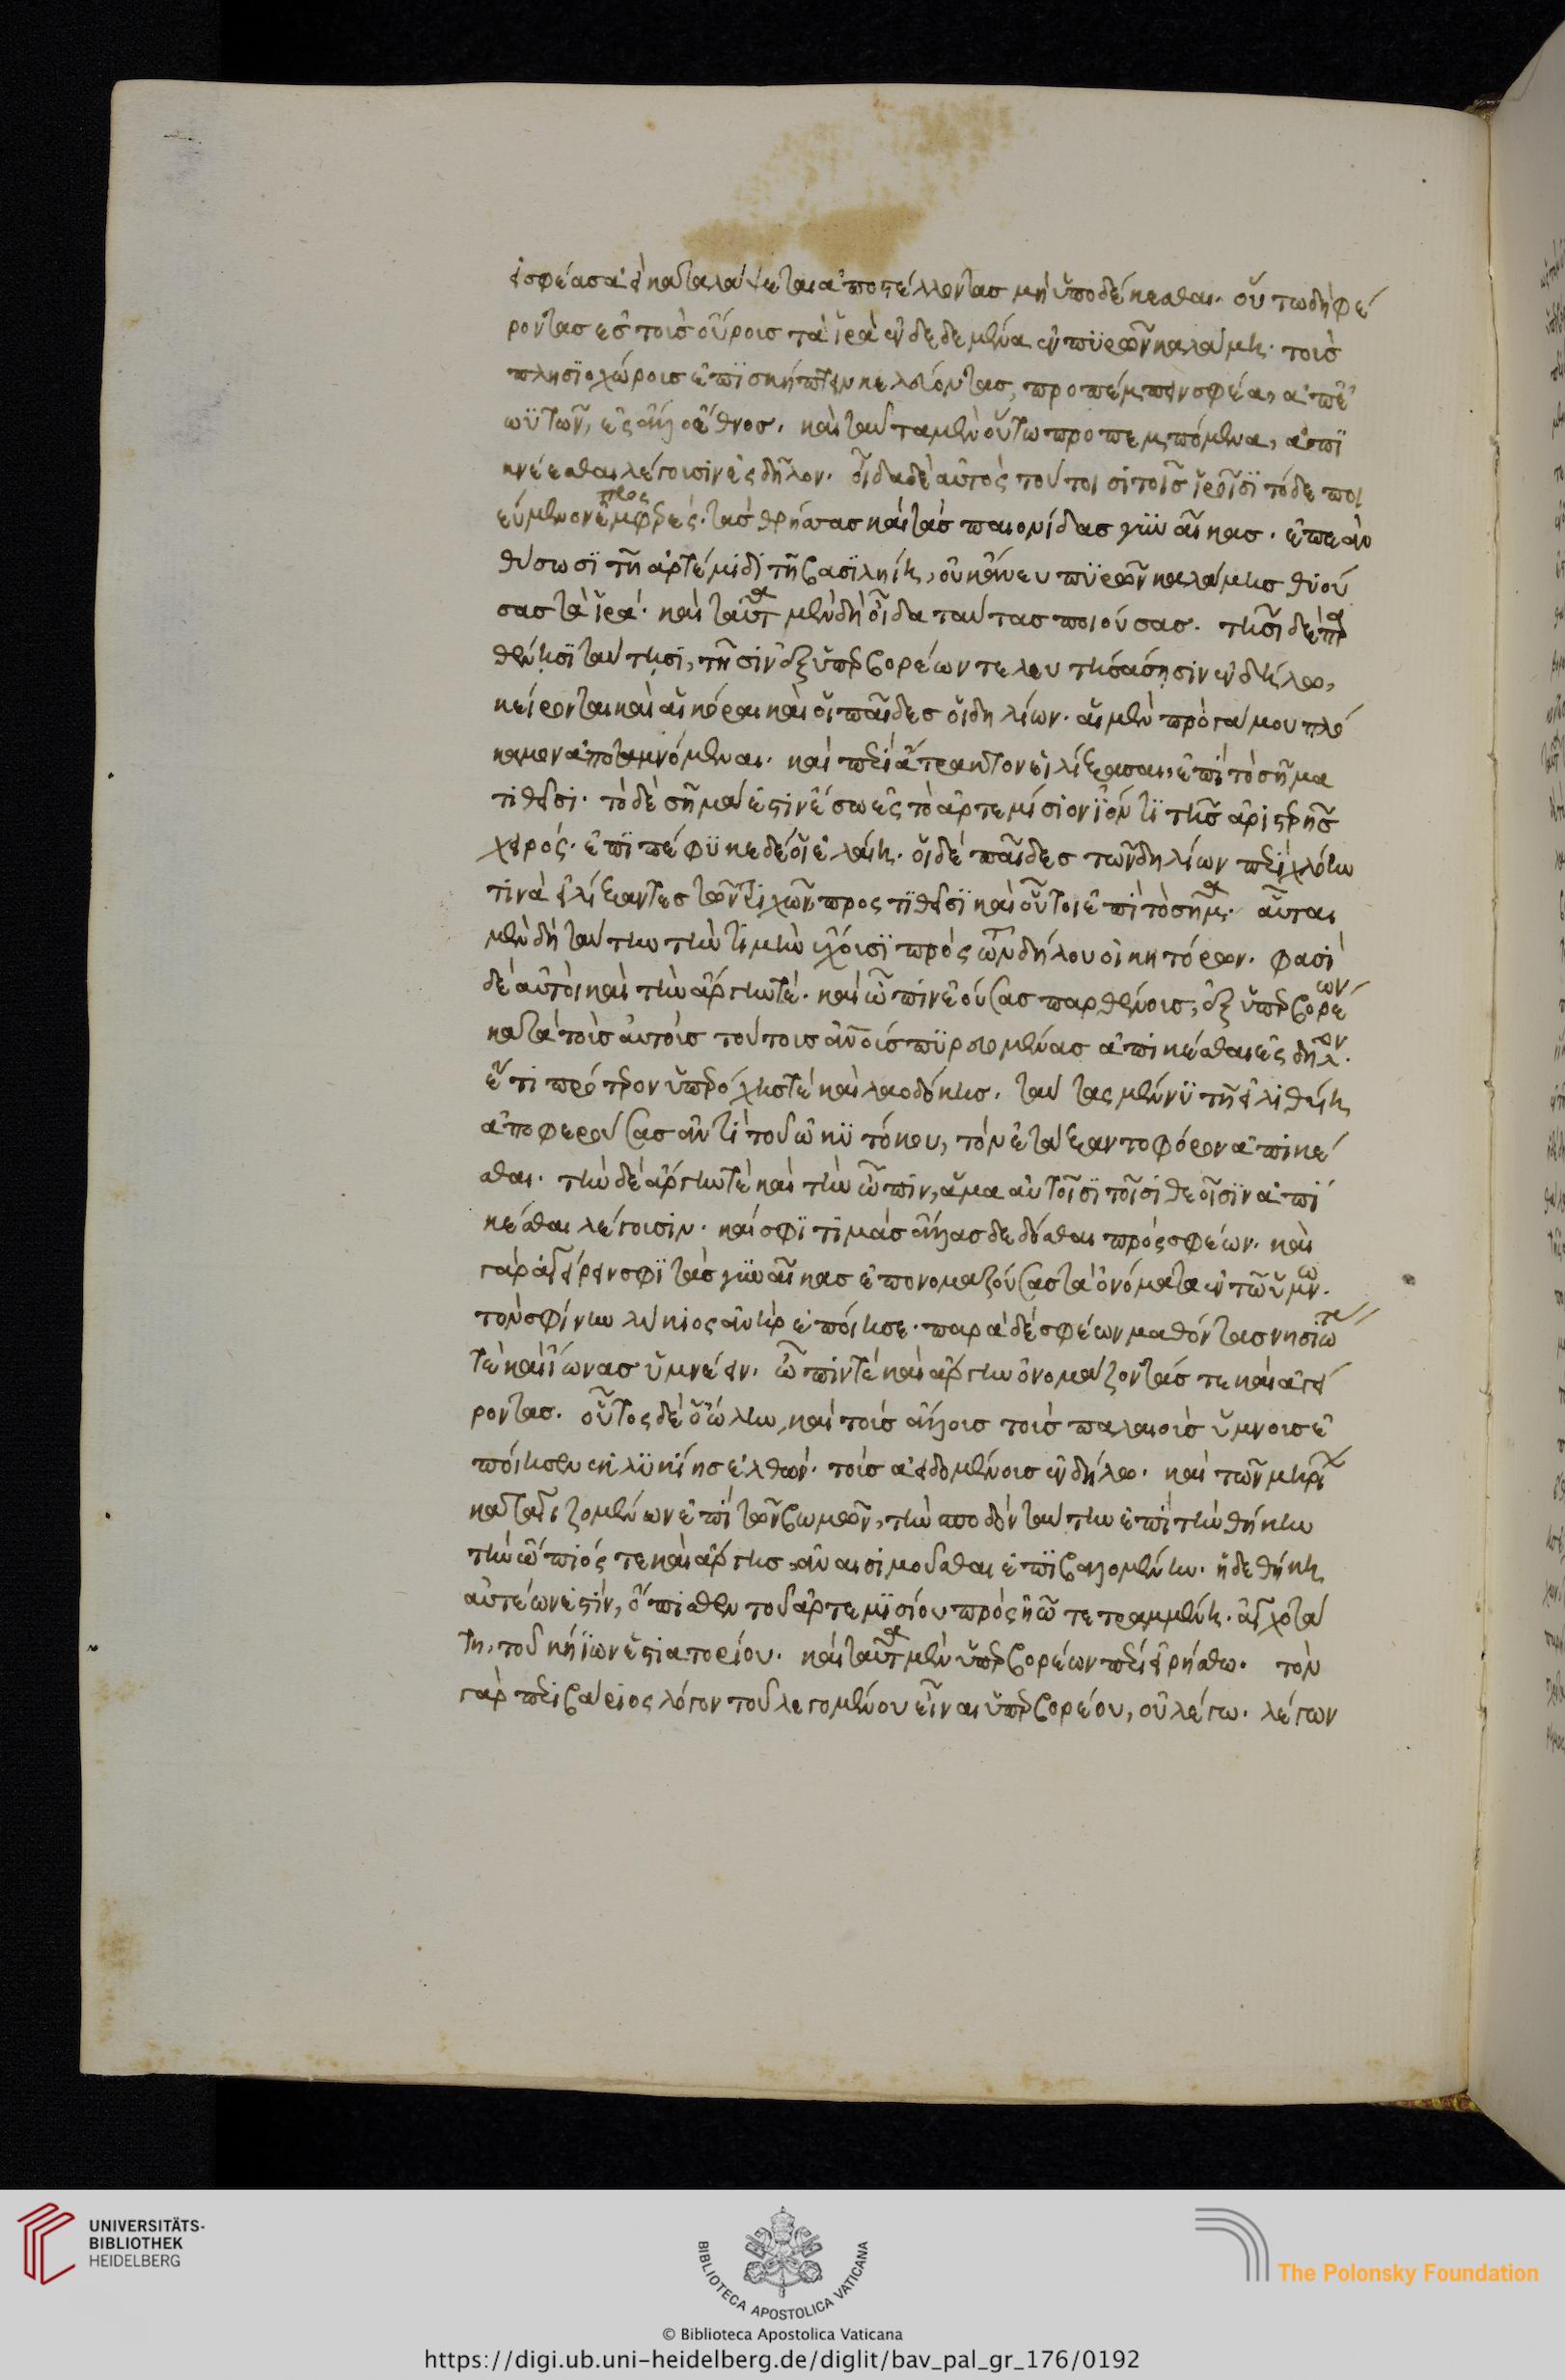 εἰσφέασ αἰεὶ καταλάψεται ἀποστέλλοντασ μὴ ὑποδέκεσθαι. οὕτω δὴ φέ
ροντασ ἐσ τοὺσ οὔρουσ τὰ ἱρὰ ἐνδεδεμένα ἐν πυρῶν καλάμη. τοῖσ
πλησιοχώροισ ἐπισκήπτειν κελεύοντασ, προπέμπειν σφέα, ἀπ' ἐ
ωυτῶν, ἐς ἄλλο ἔθνοσ. καὶ ταῦτα μὲν οὕτω προπεμπόμενα, ἀπι
κνέεσθαι λέγουσιν ἐς δῆλον. οἶδα δὲ αὐτὸς τούτοισι τοῖσ ἱροῖσι τόδε ποι
εύμενον προσ ἐμφερές. τὰσ θρηίσσασ καὶ τὰσ παιονίδασ γυναῖκασ. ἐπεὰν
θύσωσι τῇ ἀρτέμιδι τῇ βασιληίη, οὐκ ἄνευ πυρῶν καλάμησ θυού
σασ τὰ ἱρά. καὶ ταῦτα μὲν δὴ οἶδα ταύτασ ποιούσασ. τῆσι δὲ παρ
θένησι ταύτησι, τῇσιν ἐξ ὑπερβορέων τελευτησάσησιν ἐν δήλω,
κείρονται καὶ αἱ κόραι καὶ οἱ παῖδεσ οἱ δηλίων. αἱ μὲν πρὸ γάμου πλό
καμον ἀποταμνόμεναι. καὶ περὶ ἄτρακτον εἱλίξασαι, ἐπὶ τὸ σῆμα
τιθεῖσι. τὸ δὲ σῆμα ἐστιν ἔσω ἐς τὸ ἀρτεμίσιον ἰόντι τῆσ ἀριστερῆσ
χειρός. ἐπιπέφυκε δέ οἱ ἐλαίη. οἱ δὲ παῖδεσ τῶν δηλίων περὶ χλόην
τινὰ εἱλίξαντεσ τῶν τριχῶν προςτιθεῖσι καὶ οὗτοι ἐπὶ τὸ σῆμα. αὗται
μὲν δὴ ταύτην τὴν τιμὴν ἔχουσι πρὸς τῶν δήλου οἰκητόρων. φασὶ
δὲ αὐτοὶ καὶ τὴν ἄργην τέ. καὶ ὦπιν ἐούσασ παρθένουσ, ἐξ ὑπερβορέων
κατὰ τοὺσ αὐτοὺσ τούτουσ ἀνοὺσ πυρευομένασ ἀπικέσθαι ἐς δῆλον.
ἔτι πρότερον ὑπερόχησ τὲ καὶ λαοδόκησ. ταύτας μέν νυ τῇ εἰλιθυίη
ἀποφερούσασ ἀντὶ τοῦ ὠκυτόκου, τὸν ἐτάξαντο φόρον ἀπικέ
σθαι. τὴν δὲ ἄργην τὲ καὶ τὴν ὦπιν, ἅμα αὐτοῖσι τοῖσι θεοῖσιν ἀπι
κέσθαι λέγουσιν. καὶ σφι τιμὰσ ἄλλασ δεδόσθαι πρός σφέων. καὶ
γὰρ ἀγείρειν σφι τὰσ γυναῖκασ ἐπονομαζούσασ τὰ ὀνόματα ἐν τῶ ὕμνω.
τόν σφιν ὠλὴν λύκιος ἀνὴρ ἐποίησε. παρὰ δὲ σφέων μαθόντασ νησιώτασ
τὲ καὶ ἴωνασ ὑμνέειν. ὦπιν τὲ καὶ ἄργην ὀνομάζοντάσ τε καὶ ἀγεί
ροντασ. οὗτος δὲ ὁ ὠλὴν, καὶ τοὺσ ἄλλουσ τοὺσ παλαιοὺσ ὕμνουσ ἐ
ποίησεν ἐκ λυκίησ ἐλθών. τοὺσ ἀειδομένουσ ἐν δήλω. καὶ τῶν μηρῶν
καταγιζομένων ἐπὶ τῶν βωμῶν, τὴν σποδὸν ταύτην ἐπὶ τὴν θήκην
τὴν ὤπιός τε καὶ ἄργησ ἀναισιμοῦσθαι ἐπιβαλλομένην. ἡ δὲ θήκη
αὐτέων ἐστίν, ὄπισθεν τοῦ ἀρτεμισίου πρὸς ἠῶ τετραμμένη. ἀγχοτά
τη, τοῦ κηίων ἑστιατορίου. καὶ ταῦτα μὲν ὑπερβορέων πέρι εἰρήσθω. τὸν
γὰρ περὶ ἀβάριος λόγον τοῦ λεγομένου εἶναι ὑπερβορέου, οὐ λέγω. λέγων
UNIVERSITÄTS-
BIBLIOTHEK
HEIDELBERG
BIBLIOTECA APOSTOLICA VATICANA
The Polonsky Foundation
© Biblioteca Apostolica Vaticana
https://digi.ub.uni-heidelberg.de/diglit/bav_pal_gr_176/0192